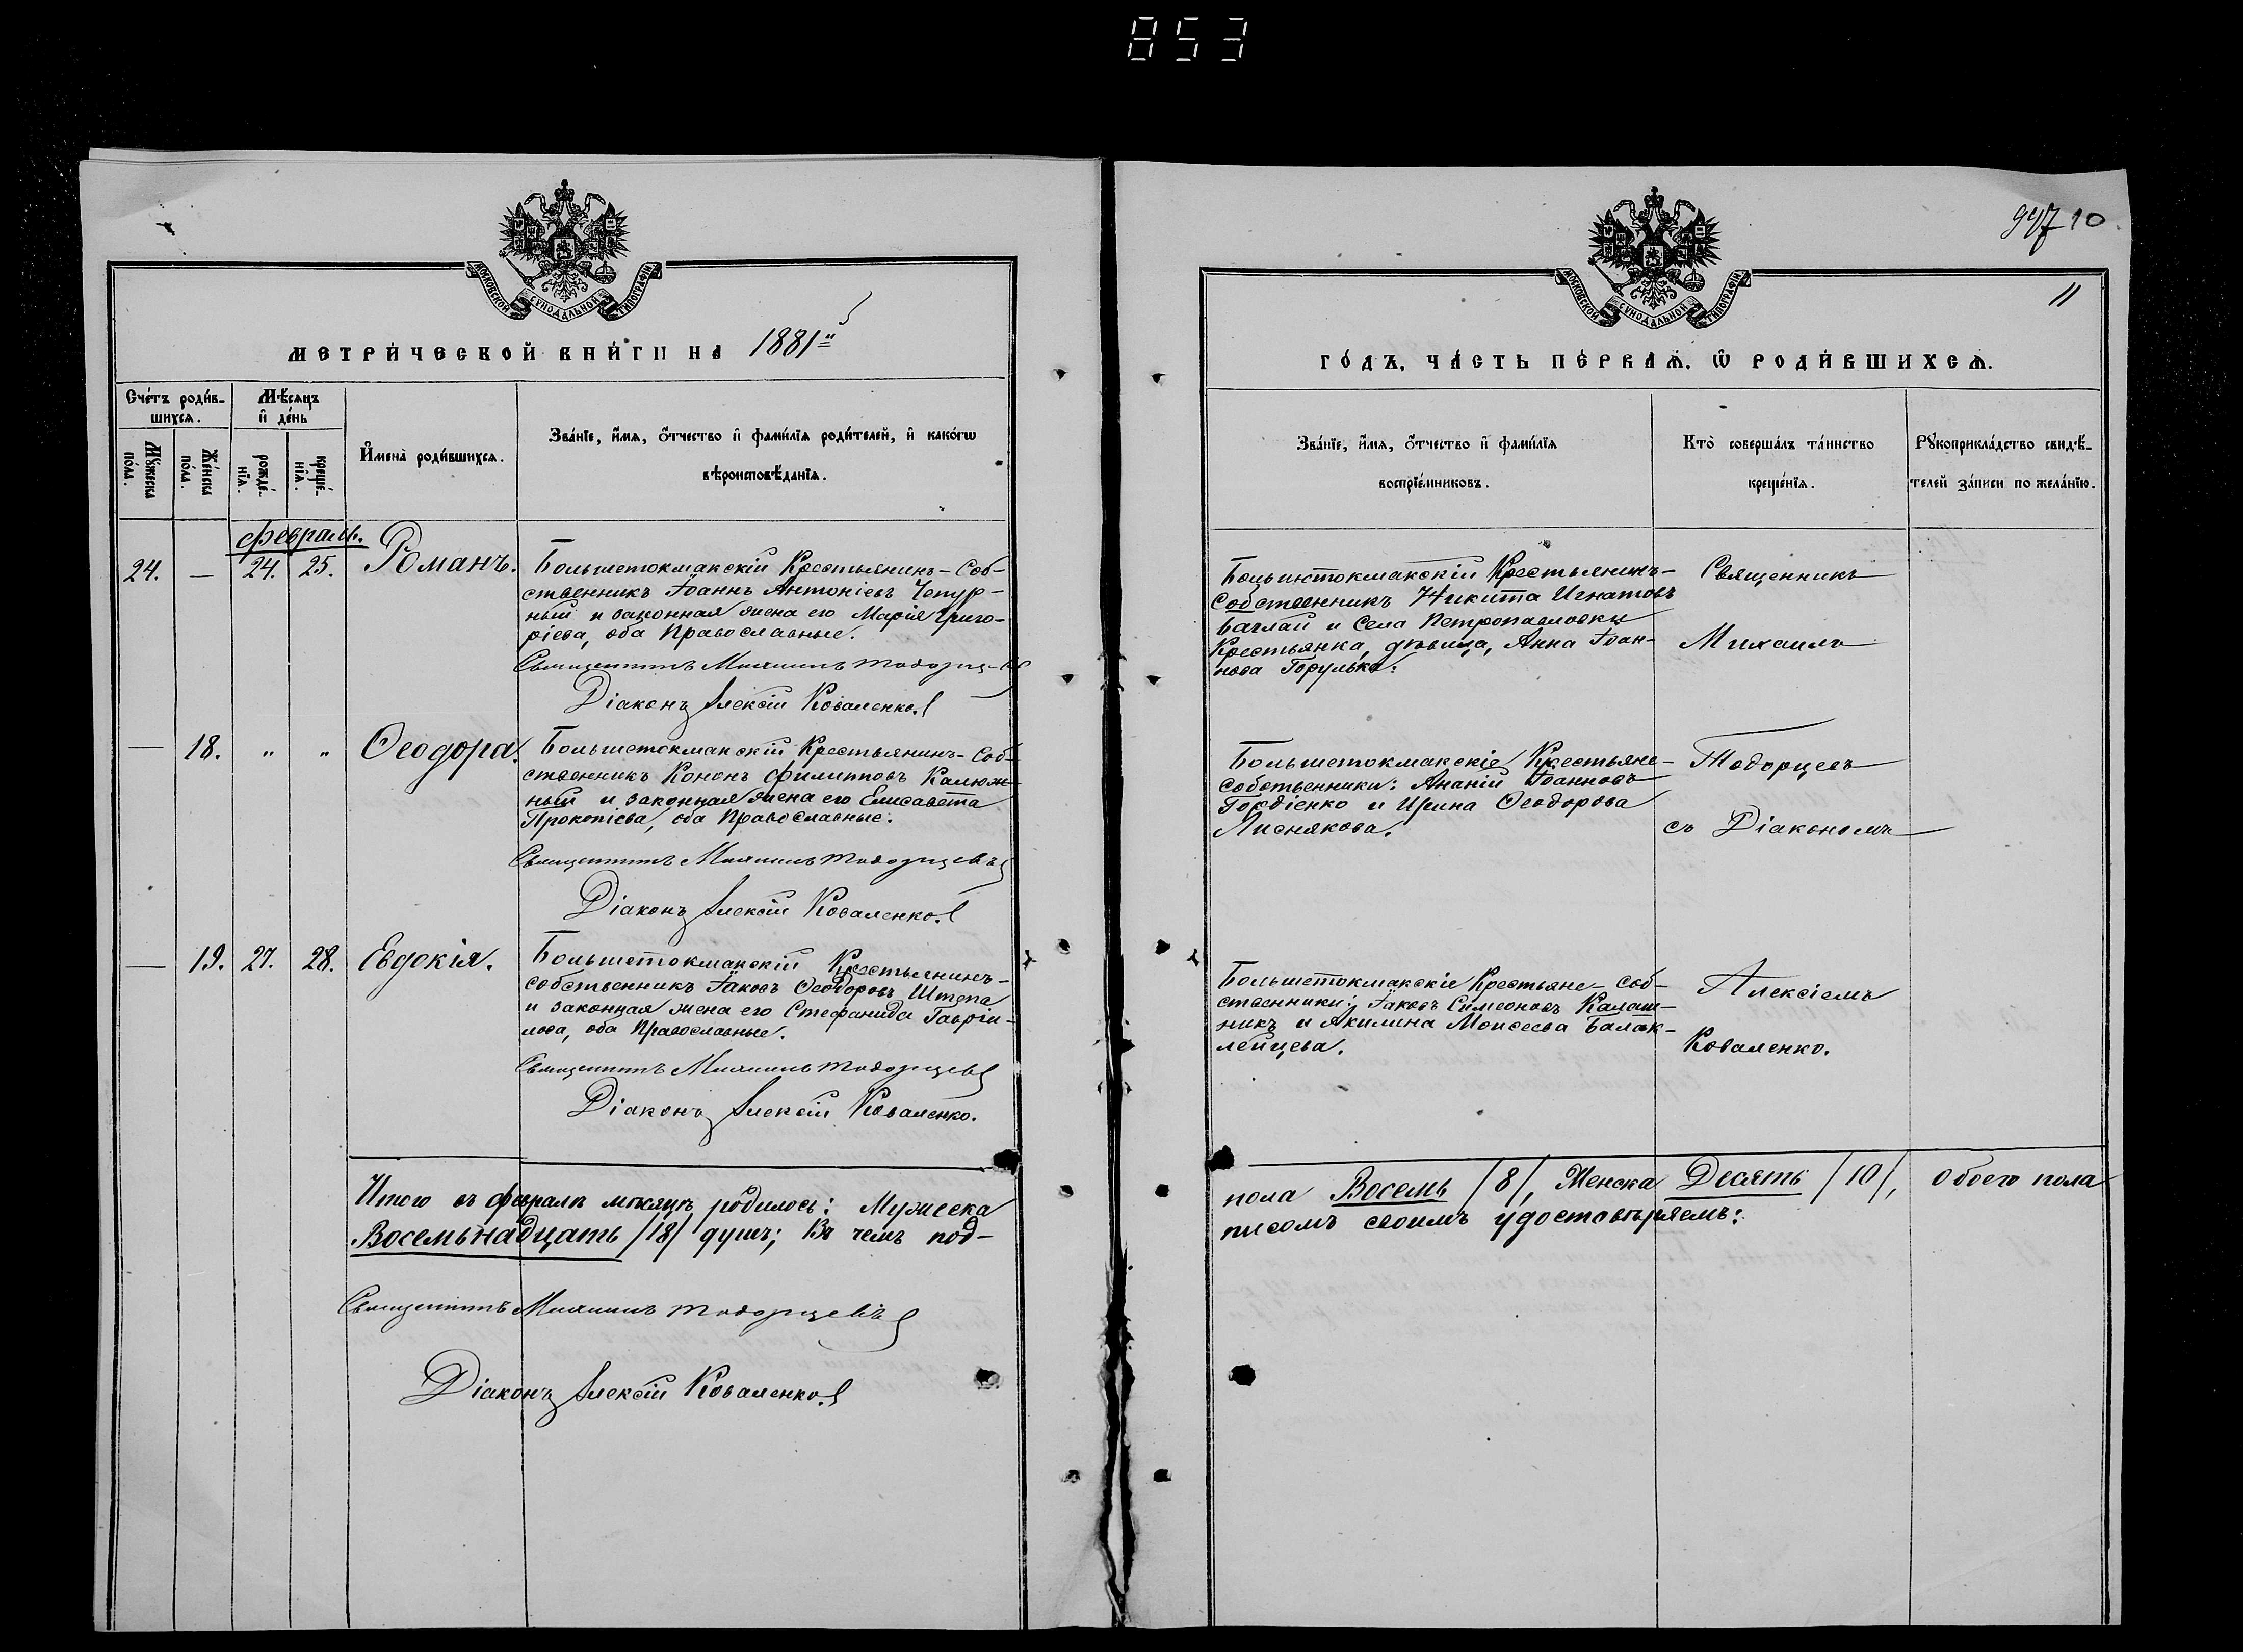 853
МОСКОВСКОЙ СѴНОДАЛЬНОЙ ТИПОГРАФІИ
МЕТРИ́ЧЕСКОЙ КНИ́ГИ НА 1881й
Сче́тъ роди́в-
шихсѧ.
Мѣ́сѧцъ
и҆ де́нь
Мꙋ́жеска
по́ла.
Же́нска
по́ла.
рожде́-
нїѧ.
креще́-
нїѧ.
И҆мена̀ роди́вшихсѧ.
Зва́нїе, и҆́мѧ, ѻ҆́тчество и҆ фами́лїѧ роди́телей, и҆ како́гѡ
вѣроисповѣ́данїѧ.
Февраль.
24. — 24. 25. Романъ.
Большетокмакскій Крестьянинъ-Соб-
ственникъ Іоаннъ Антоніевъ Чепур-
ный и законная жена его Марія Григо-
ріева, оба Православные.
Священникъ Михаилъ Тодорцевъ
Діаконъ Алексій Коваленко.
— 18. " " Ѳеодора.
Большетокмакскій Крестьянинъ-Соб-
ственникъ Кононъ Филипповъ Калюж-
ный и законная жена его Елисавета
Прокопіева, оба Православные.
Священникъ Михаилъ Тодорцевъ
Діаконъ Алексій Коваленко.
— 19. 27. 28. Евдокія.
Большетокмакскій Крестьянинъ-
собственникъ Іаковъ Ѳеодоровъ Штепа
и законная жена его Стефанида Гавріи-
лова, оба Православные.
Священникъ Михаилъ Тодорцевъ
Діаконъ Алексій Коваленко.
Итого въ февралѣ мѣсяцѣ родилось: Мужеска
Восемьнадцать /18/ душъ; Въ чемъ под-
Священникъ Михаилъ Тодорцевъ
Діаконъ Алексій Коваленко.
10
11
МОСКОВСКОЙ СѴНОДАЛЬНОЙ ТИПОГРАФІИ
ГО́ДЪ, ЧА́СТЬ ПЕ́РВАѦ, Ѡ҆ РОДИ́ВШИХСѦ.
Зва́нїе, и҆́мѧ, ѻ҆́тчество и҆ фами́лїѧ
воспрїе́мниковъ.
Кто̀ соверша́лъ та́инство
креще́нїѧ.
Рꙋкоприкла́дство свидѣ́-
телей за́писи по жела́нїю.
Большетокмакскій Крестьянинъ-
Собственникъ Никита Игнатовъ
Баглай и Села Петропавловки
Крестьянка, дѣвица, Анна Іоан-
нова Горулька.
Священникъ
Михаилъ
Большетокмакскіе Крестьяне-
собственники: Ананій Іоанновъ
Гордіенко и Ирина Ѳеодорова
Лиснякова.
Тодорцевъ
съ Діакономъ
Большетокмакскіе Крестьяне-Соб-
ственники: Іаковъ Симеоновъ Калаш-
никъ и Акилина Моисеева Балак-
лейцева.
Алексіемъ
Коваленко.
пола Восемь /8/, Женска Десять /10/, Обоего пола
писомъ своимъ удостовѣряемъ: